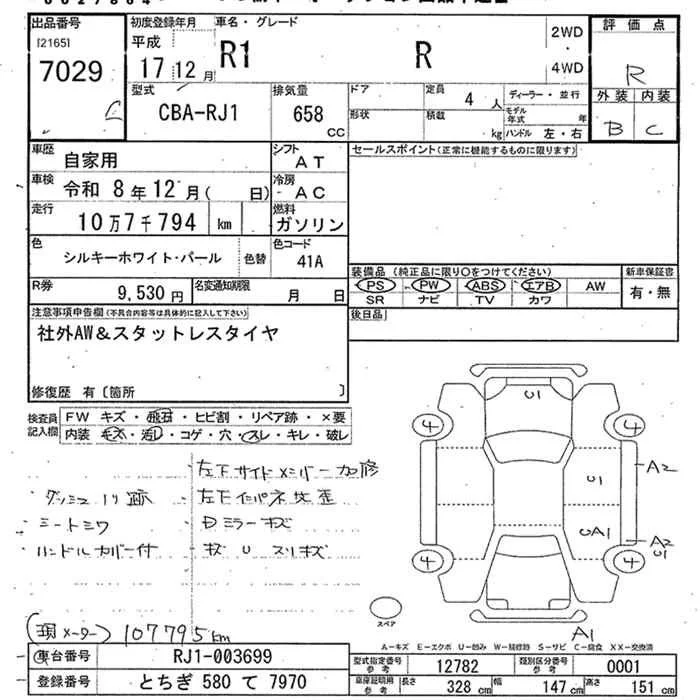 出品番号
[2165]
7029
初度登録年月
平成
17 12 月
車名・グレード
R1 R
2WD
・
4WD
評価点
R
外装 内装
B C
型式
CBA-RJ1
排気量
658
CC
ドア
定員
4 人
ディーラー・並行
形状
積載
kg
モデル年式 年
ハンドル 左・右
車歴
自家用
シフト
AT
車検
令和 8年12月( 日)
冷房
AC
走行
10万7千794 km
燃料
ガソリン
色
シルキーホワイト・パール
色替
色コード
41A
R券
9,530 円
名変通知期限
月 日
セールスポイント(正常に機能するものに限ります)
装備品 (純正品に限り○をつけてください)
新車保証書
PS PW ABS エアB AW
有・無
SR ナビ TV カワ
後日品
注意事項申告欄(不具合内容等は具体的に記入して下さい)
社外AW&スタットレスタイヤ
修復歴 有〔箇所 〕
検査員記入欄
FW キズ・飛石・ヒビ割・リペア跡・×要
内装・モ大・汚レ・コゲ・穴・スレ・キレ・破レ
左下サイドメンバー加修
ダッシュ ノリ跡
左下インパネ 歪
シートシワ
Dミラーキズ
ハンドルカバー付
キズ U スリキズ
U1
4
4
U1
A2
UA1
A2
U1
4
4
A1
スペア
(現メーター) 107795km
A=キズ E=エクボ U=凹み W=補修跡 S=サビ C=腐食 XX=交換済
車台番号
RJ1-003699
登録番号
とちぎ 580 て 7970
型式指定番号
参考
12782
類別区分番号
参考
0001
車庫証明用
参考
長さ
328 cm
幅
147 cm
高さ
151 cm